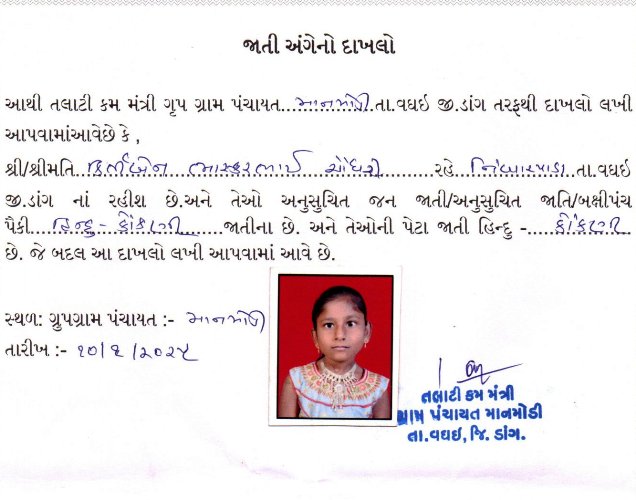 જાતી અંગેનો દાખલો
આથી તલાટી કમ મંત્રી ગૃપ ગ્રામ પંચાયત...માનમોડી...તા.વઘઇ જી.ડાંગ તરફથી દાખલો લખી
આપવામાંઆવેછે કે ,
શ્રી/શ્રીમતિ ભાસ્કરભાઈ ચૌધરી.........રહે તા.વઘઇ
જી.ડાંગ નાં રહીશ છે.અને તેઓ અનુસુચિત જન જાતી/અનુસુચિત જાતિ/બક્ષીપંચ
પૈકી....હિન્દુ - કોંકણી.......જાતીના છે. અને તેઓની પેટા જાતી હિન્દુ -.....કોંકણી.....
છે. જે બદલ આ દાખલો લખી આપવામાં આવે છે.
સ્થળ: ગ્રુપગ્રામ પંચાયત :- માનમોડી
તારીખ :- ૧૦/૬/૨૦૨૫
તલાટી કમ મંત્રી
ગ્રામ પંચાયત માનમોડી
તા.વઘઇ, જિ. ડાંગ.